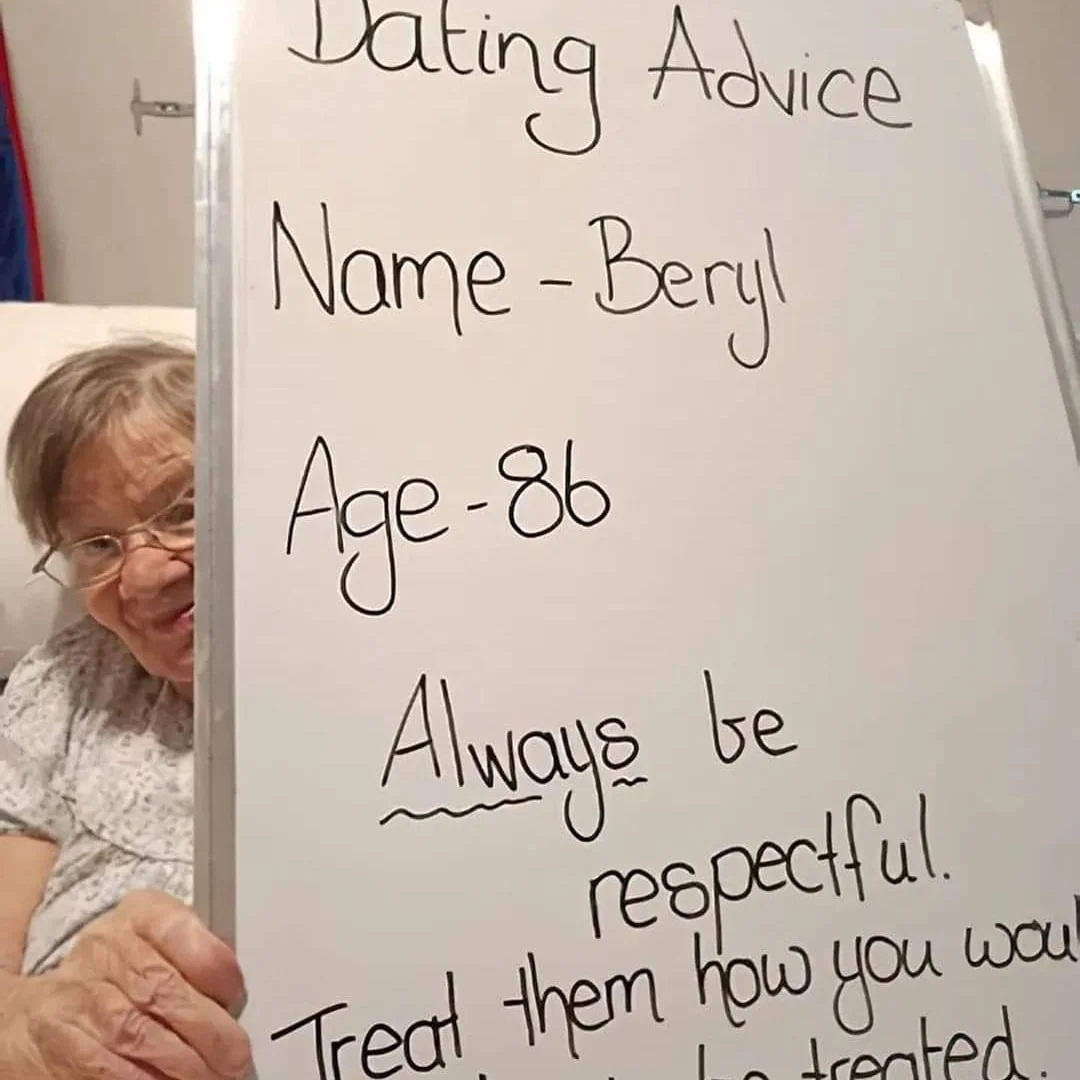 Dating Advice
Name - Beryl
Age - 86
Always be
respectful.
Treat them how you woul
be treated.